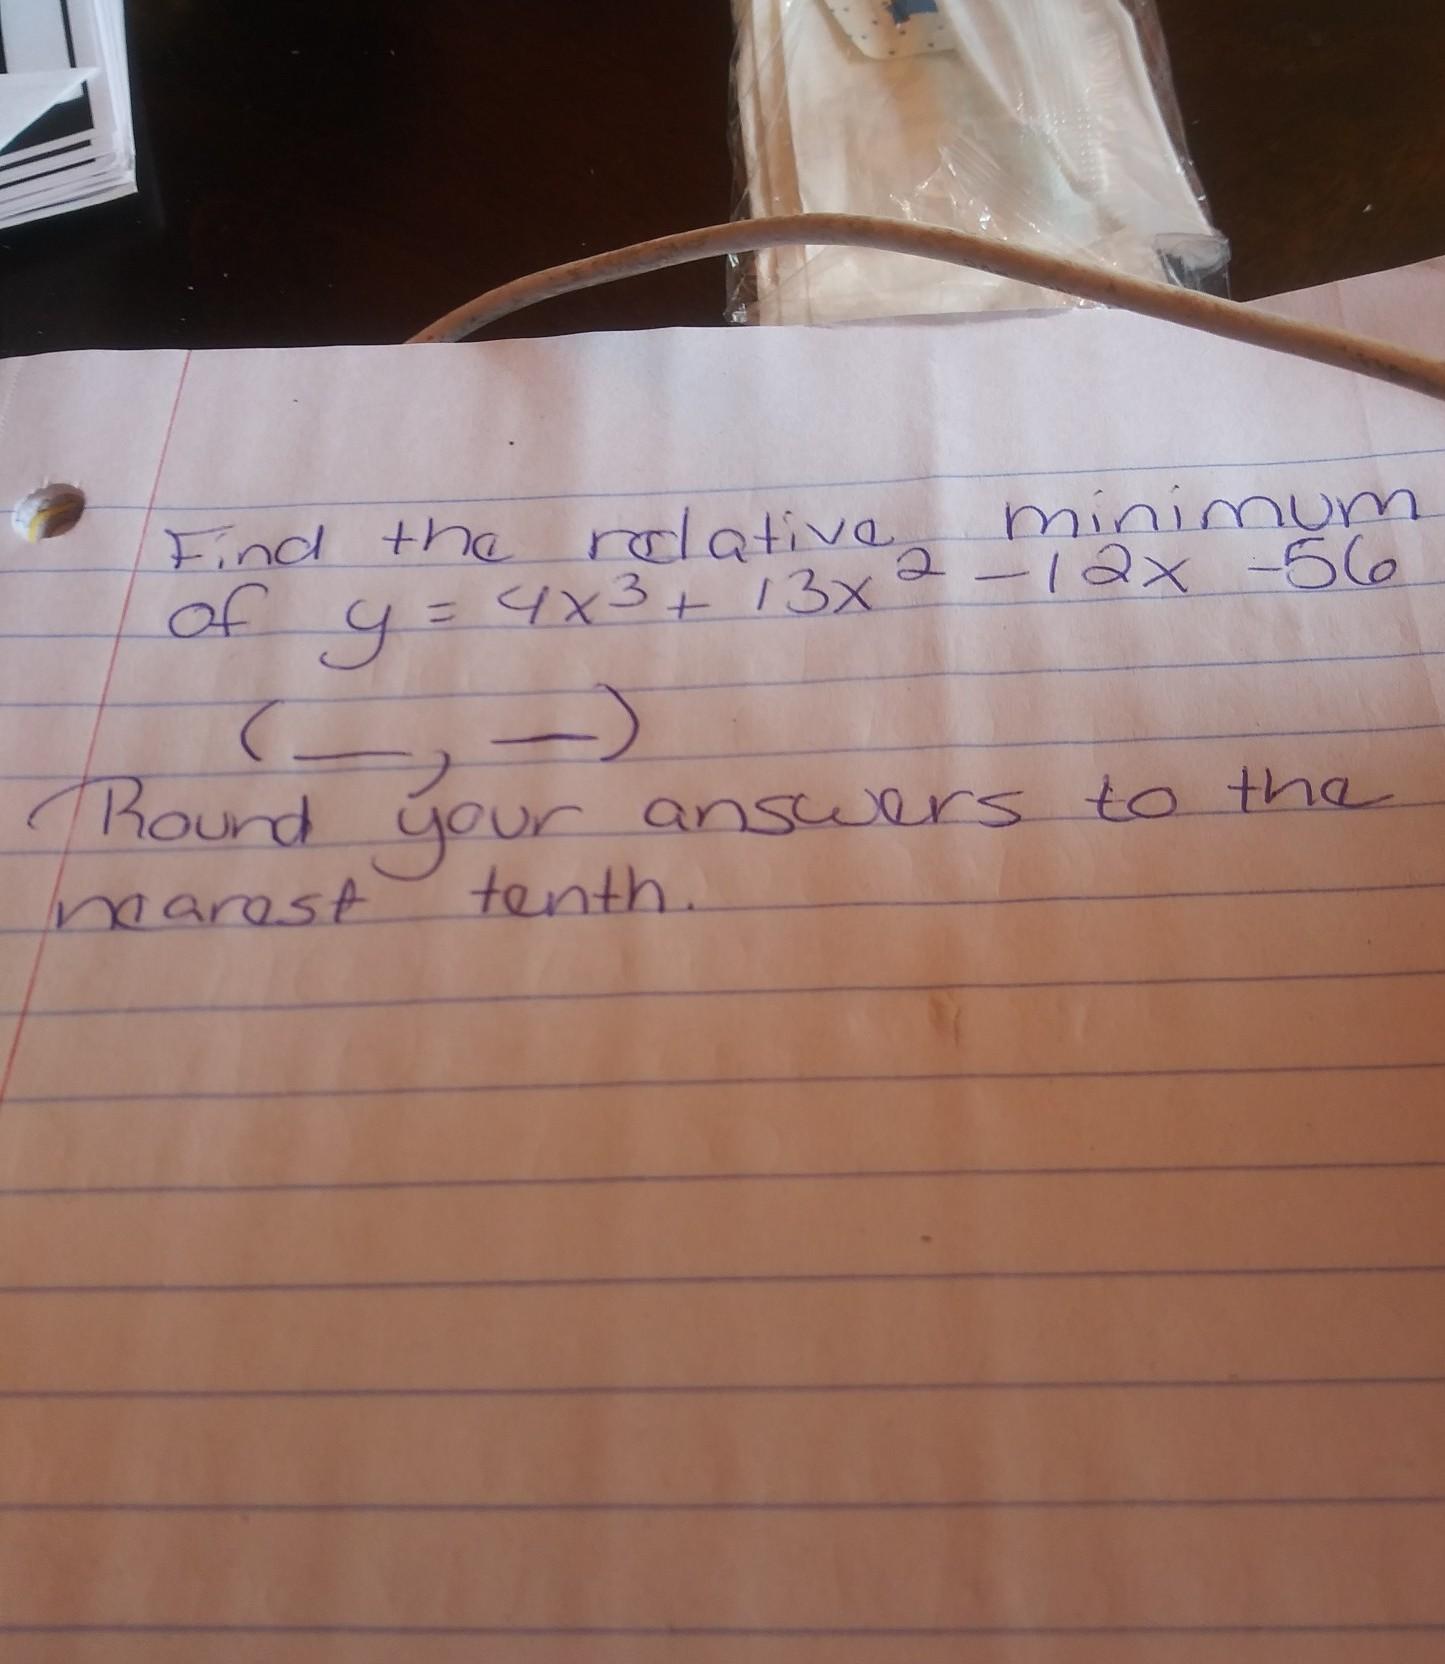 Find the relative minimum
of y = 4x³ + 13x² - 12x - 56
(__, __)
Round your answers to the
nearest tenth.